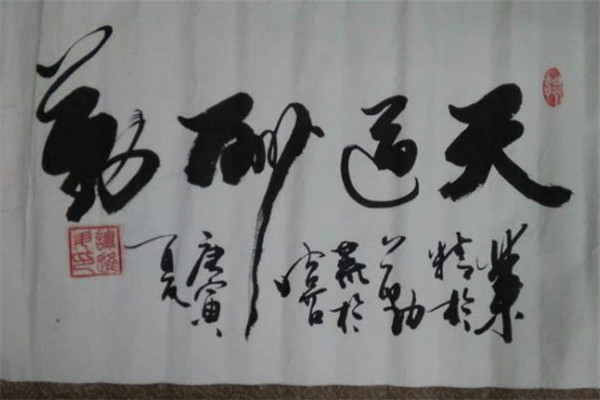 天道酬勤
業
精於
勤
荒於
嘻
庚寅
夏